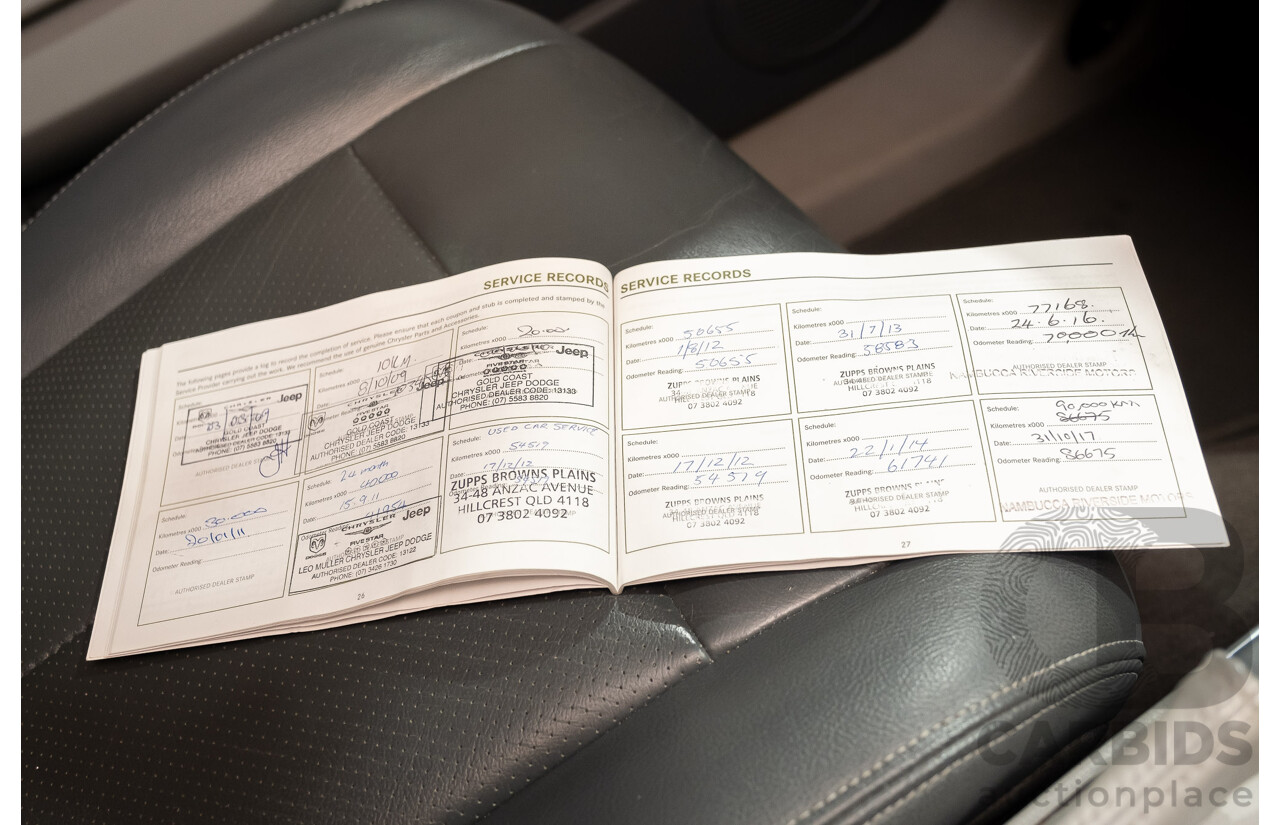 SERVICE RECORDS
The following pages provide a log to record the completion of service. Please ensure that each coupon and stub is completed and stamped by the
Service Provider carrying out the work. We recommend the use of genuine Chrysler Parts and Accessories.
CHRYSLER Jeep
GOLD COAST
CHRYSLER JEEP DODGE
AUTHORISED DEALER CODE: 13133
PHONE: (07) 5583 8820
AUTHORISED DEALER
Schedule:
Kilometres x000
FIVE STAR
Jeep
GOLD COAST
CHRYSLER JEEP DODGE
AUTHORISED DEALER CODE:
PHONE: (07) 5583 8820
Schedule:
Kilometres x000 20.000
Jeep
FIVE STAR
GOLD COAST
CHRYSLER JEEP DODGE
AUTHORISED DEALER CODE: 13133
PHONE: (07) 5583 8820
Schedule:
Kilometres x000 30.000
Date: 20/01/11
Odometer Reading:
AUTHORISED DEALER STAMP
Schedule: 24 month
Kilometres x000 40000
Date: 15.9.11
CHRYSLER Jeep
FIVE STAR
LEO MULLER CHRYSLER JEEP DODGE
AUTHORISED DEALER CODE: 13122
PHONE: (07) 3426 1730
USED CAR SERVICE
54519
Date: 17/12/12
ZUPPS BROWNS PLAINS
34-48 ANZAC AVENUE
HILLCREST QLD 4118
07 3802 4092
26
SERVICE RECORDS
Schedule:
Kilometres x000 50655
Date: 1/8/12
Odometer Reading: 50655
ZUPPS BROWNS PLAINS
AUTHORISED DEALER STAMP
07 3802 4092
Schedule:
Kilometres x000
Date: 31/7/13
Odometer Reading: 58583
ZUPPS BROWNS PLAINS
AUTHORISED DEALER STAMP
07 3802 4092
Schedule:
Kilometres x000 77168.
Date: 24.6.16.
Odometer Reading:
AUTHORISED DEALER STAMP
NAMBUCCA RIVERSIDE MOTORS
Schedule:
Kilometres x000
Date: 17/12/12
Odometer Reading: 54519
ZUPPS BROWNS PLAINS
AUTHORISED DEALER STAMP
07 3802 4092
Schedule:
Kilometres x000
Date: 22/1/14
Odometer Reading: 61741
ZUPPS BROWNS PLAINS
AUTHORISED DEALER STAMP
07 3802 4092
Schedule: 90,000 km
Kilometres x000 86675
Date: 31/10/17
Odometer Reading: 86675
AUTHORISED DEALER STAMP
NAMBUCCA RIVERSIDE MOTORS
27
CARBIDS
auctionplace